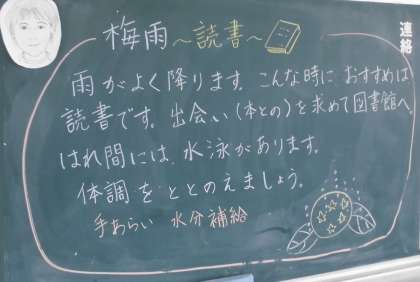 梅雨～読書～
連絡
雨がよく降ります。こんな時におすすめは
読書です。出会い(本との)を求めて図書館へ。
はれ間には、水泳があります。
体調をととのえましょう。
手あらい 水分補給